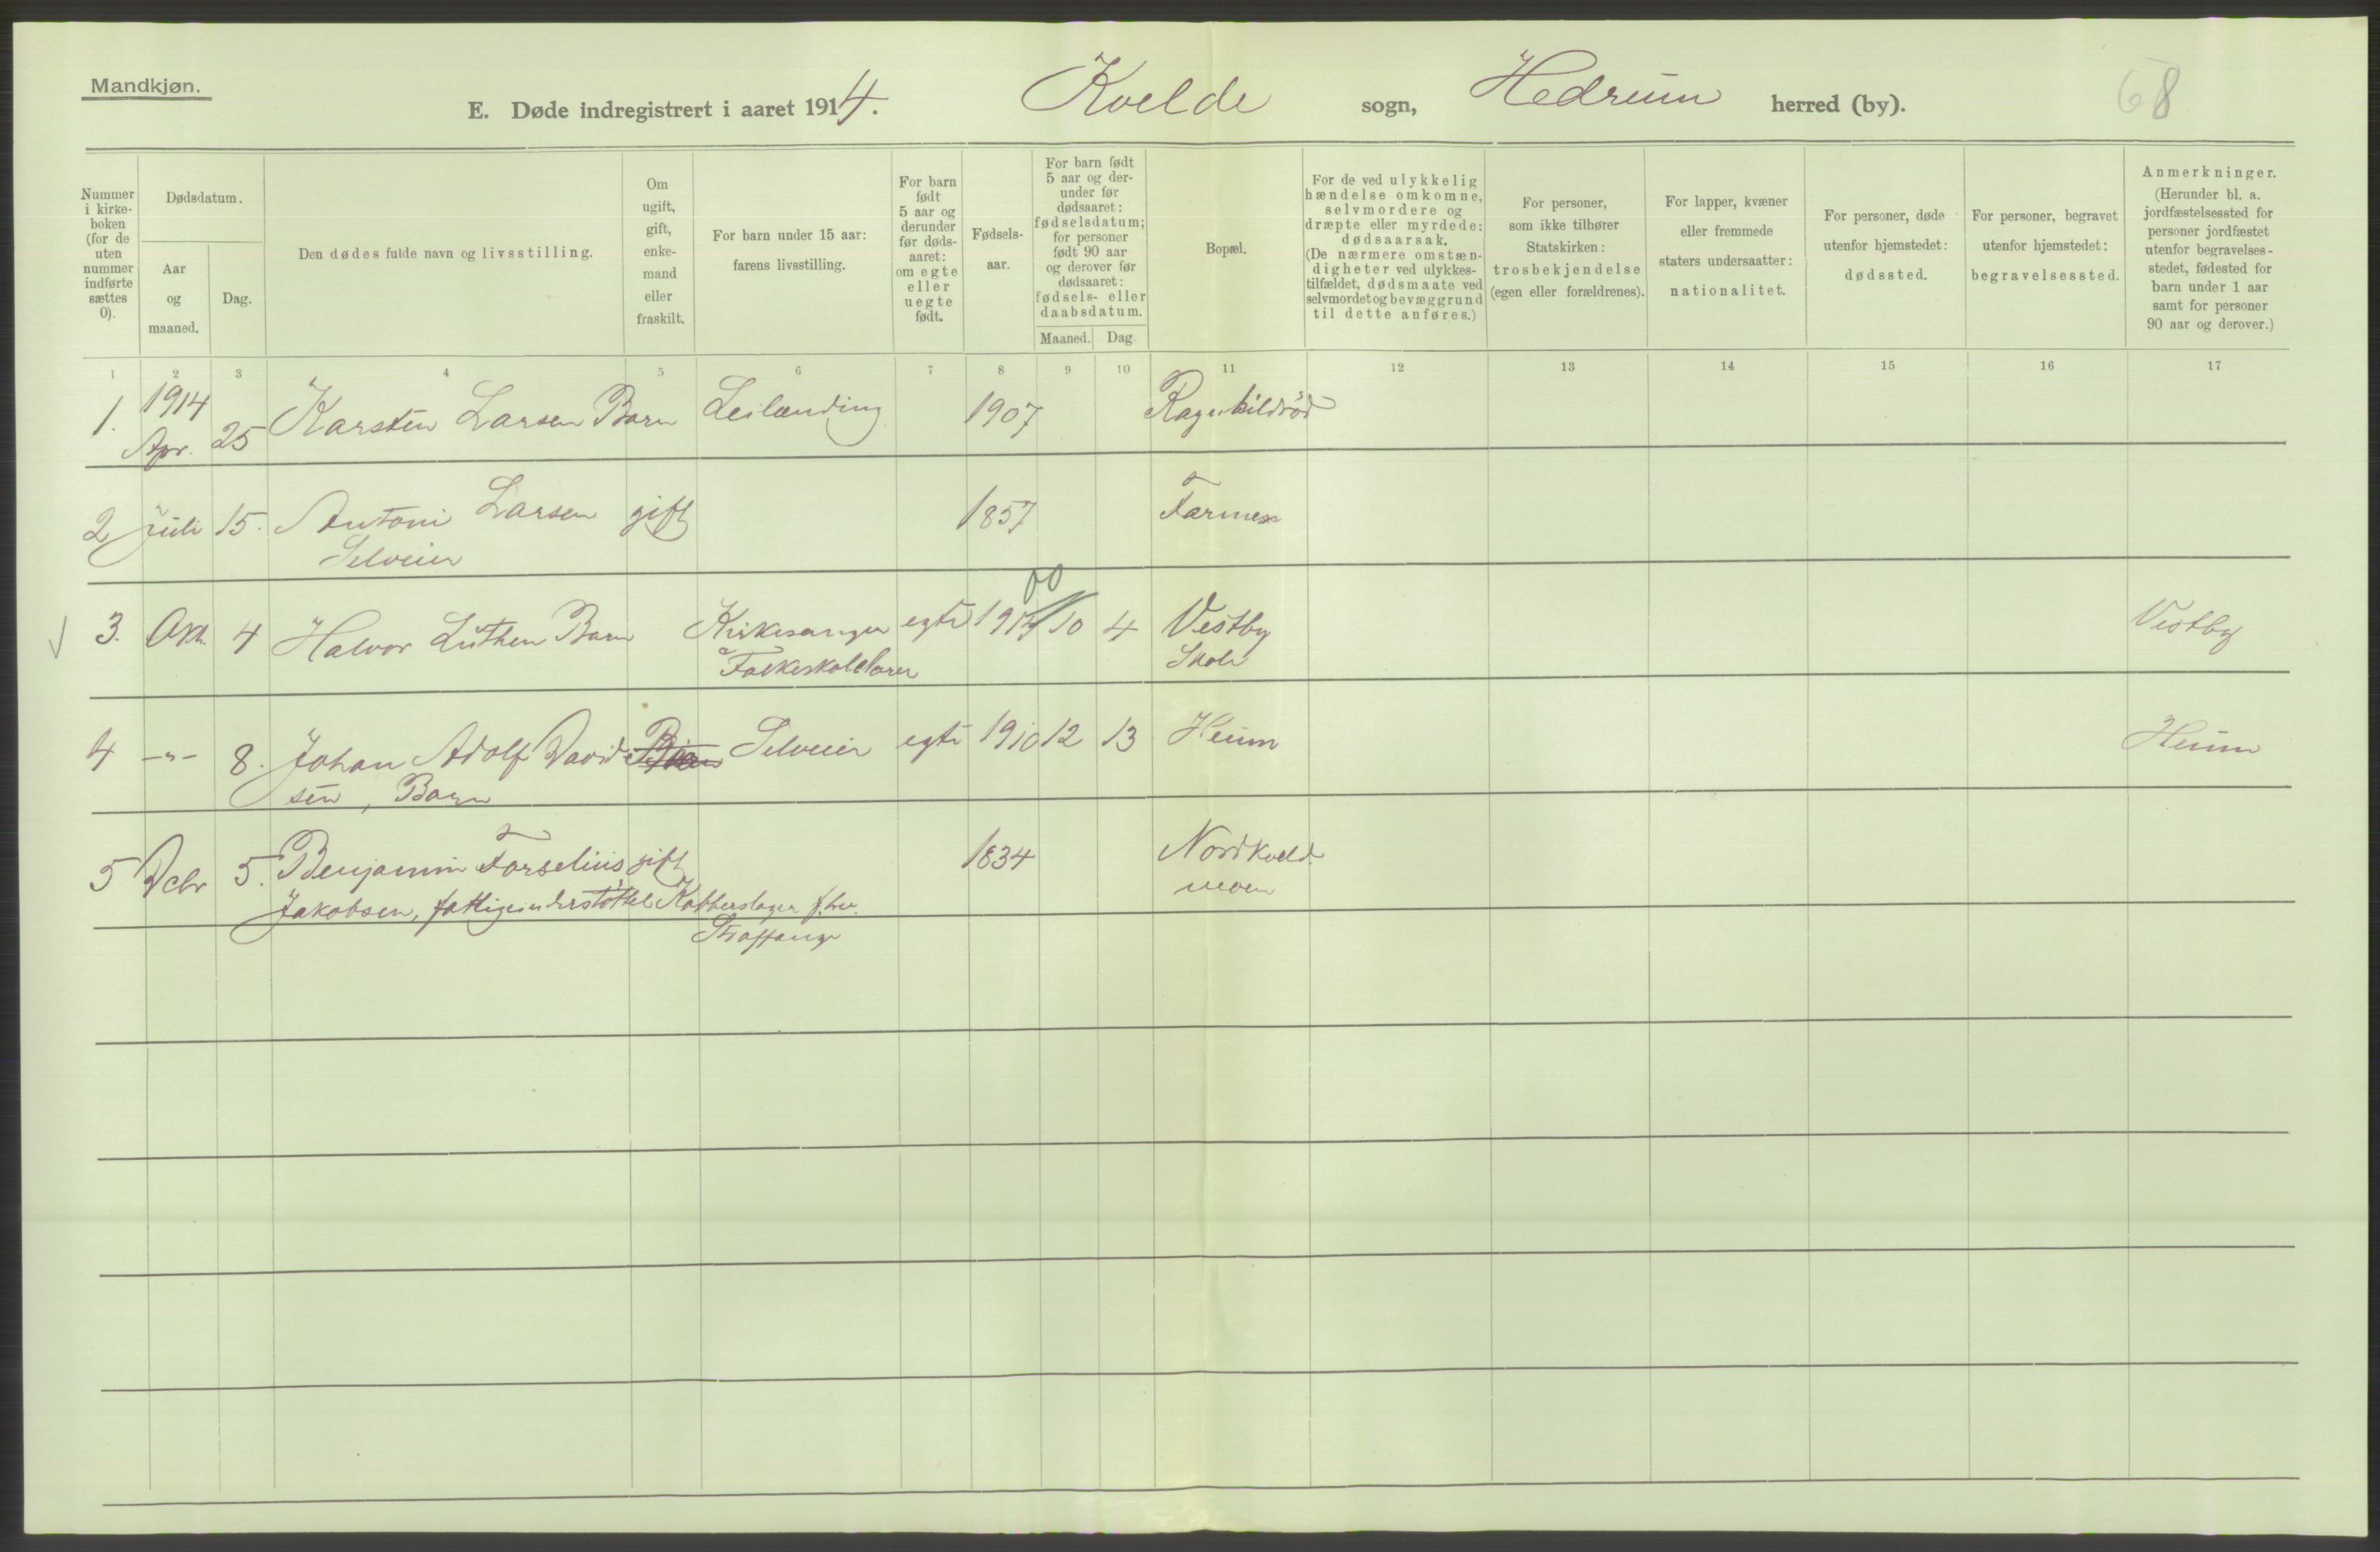 Mandkjøn.
E. Døde indregistrert i aaret 1914. Kvelde sogn, Hedrum herred (by). 68
Nummer i kirke-boken (for de uten nummer indførte sættes 0).
Dødsdatum.
Aar og maaned.
Dag.
Den dødes fulde navn og livsstilling.
Om ugift, gift, enke-mand eller fraskilt.
For barn under 15 aar: farens livsstilling.
For barn født 5 aar og derunder før døds-aaret: om egte eller uegte født.
Fødsels-aar.
For barn født 5 aar og der-under før dødsaaret: fødselsdatum; for personer født 90 aar og derover før dødsaaret: fødsels- eller daabsdatum.
Maaned. Dag
Bopæl.
For de ved ulykkelig hændelse omkomne, selvmordere og dræpte eller myrdede: dødsaarsak. (De nærmere omstæn-digheter ved ulykkes-tilfældet, dødsmaate ved selvmordet og bevæggrund til dette anføres.)
For personer, som ikke tilhører Statskirken: trosbekjendelse (egen eller forældrenes).
For lapper, kvæner eller fremmede staters undersaatter: nationalitet.
For personer, døde utenfor hjemstedet: dødssted.
For personer, begravet utenfor hjemstedet: begravelsessted.
Anmerkninger. (Herunder bl. a. jordfæstelsessted for personer jordfæstet utenfor begravelses-stedet, fødested for barn under 1 aar samt for personer 90 aar og derover.)
1 2 3 4 5 6 7 8 9 10 11 12 13 14 15 16 17
1. 1914 Apr. 25 Karsten Larsen Barn Leilænding 1907 Ragnhildrød
2 Juli 15. Antoni Larsen gift 1857 Farmen
Selveier
3. Okt. 4 Halvor Luthen Barn Kirkesanger egte 1914 10 4 Vestby Vestby
Folkeskolelærer Skole
4 -"- 8. Johan Adolf David Barn Selveier egte 1910 12 13 Heum Heum
sen, Barn
5 Dcbr 5. Benjamin Forselius gift 1834 Nordkveld
Jakobsen, fattigunderstøttet Kobberslager f.hv. moen
Straffange